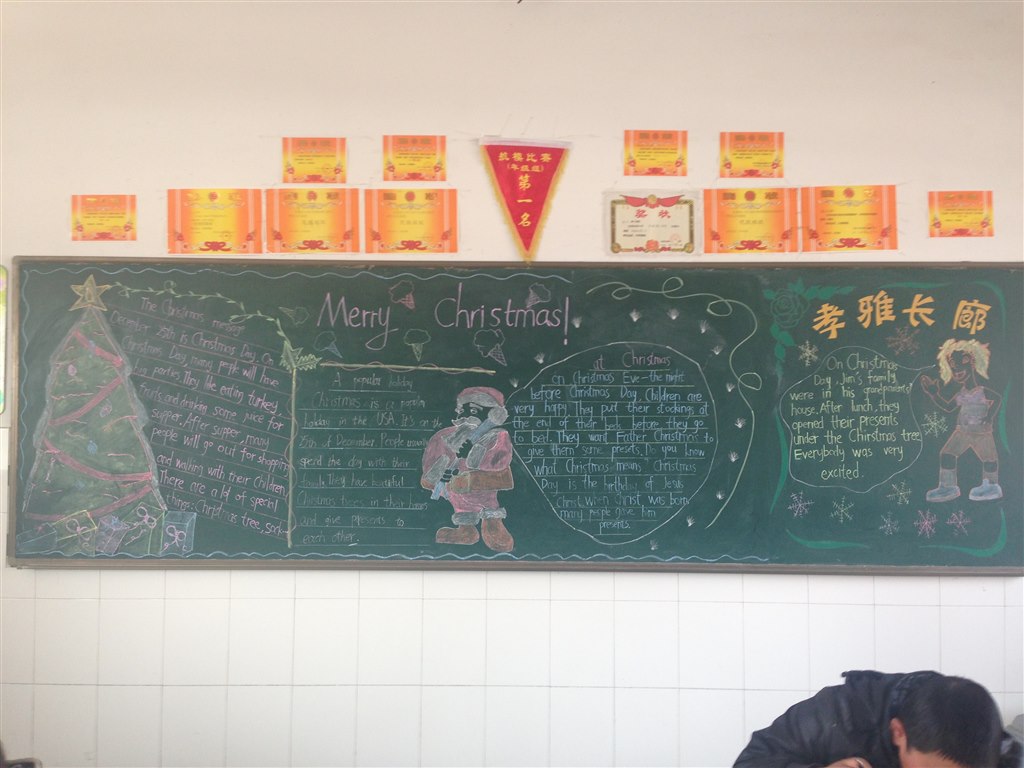 航模比赛
(年级组)
第一名
奖状
Merry Christmas!
The Christmas message
December 25th is Christmas Day. On
Christmas Day, many people will have
big parties. They like eating turkey,
fruits and drinking some juice for
supper. After supper, many
people will go out for shopping
and walking with their children
There are a lot of special
things: Christmas tree, socks
A popular holiday
Christmas is a popular
holiday in the USA. It's on the
25th of December. People usually
spend the day with their
family. They have beautiful
Christmas trees in their homes
and give presents to
each other.
at Christmas
on Christmas Eve — the night
before Christmas Day. Children are
very happy. They put their stockings at
the end of their beds before they go
to bed. They want Father Christmas to
give them some presets. Do you know
what Christmas means? Christmas
Day is the birthday of Jesus
Christ. When Christ was born
many people gave him
presents.
孝雅长廊
On Christmas
Day, Jim's family
were in his grandparents'
house. After lunch, they
opened their presents
under the Chirstmas tree
Everybody was very
excited.